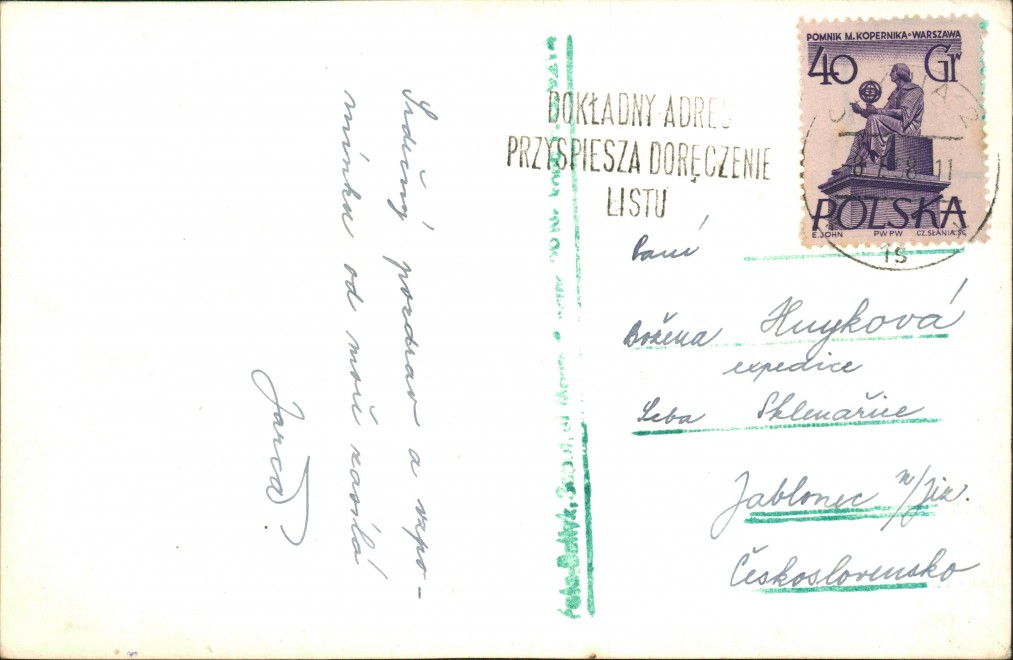 Srdečný pozdrav a vzpo-
mínku od moře zasílá
Jarca.
DOKŁADNY ADRES
PRZYSPIESZA DORĘCZENIE
LISTU
POMNIK M. KOPERNIKA-WARSZAWA
40 Gr
POLSKA
E. JOHN PWPW CZ. SŁANIA SC.
Paní
Božena Huyková
expedice
Seba Sklenařice
Jablonec n/Jiz.
Československo